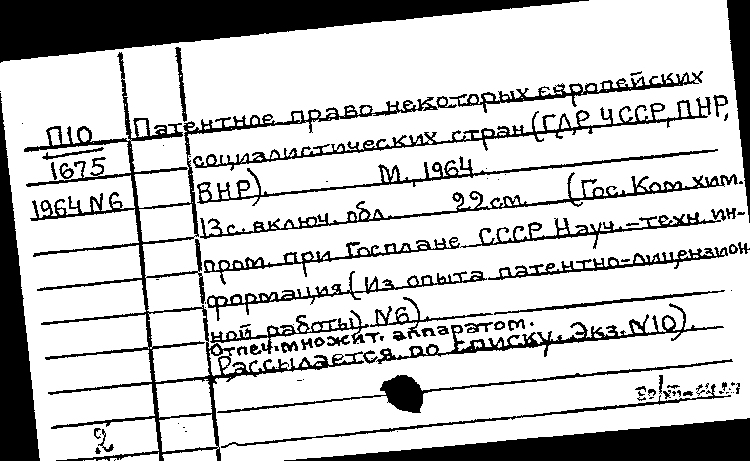 П10
1675
1964 N6
Патентное право некоторых европейских
социалистических стран (ГДР, ЧССР, ПНР,
ВНР). М., 1964.
13 с. включ. обл. 22 см. (Гос. Ком. хим.
пром. при Госплане СССР. Науч.-техн. ин-
формация (Из опыта патентно-лицензион-
ной работы). N6).
Отпеч. множит. аппаратом.
Рассылается по списку. Экз. N10).
2